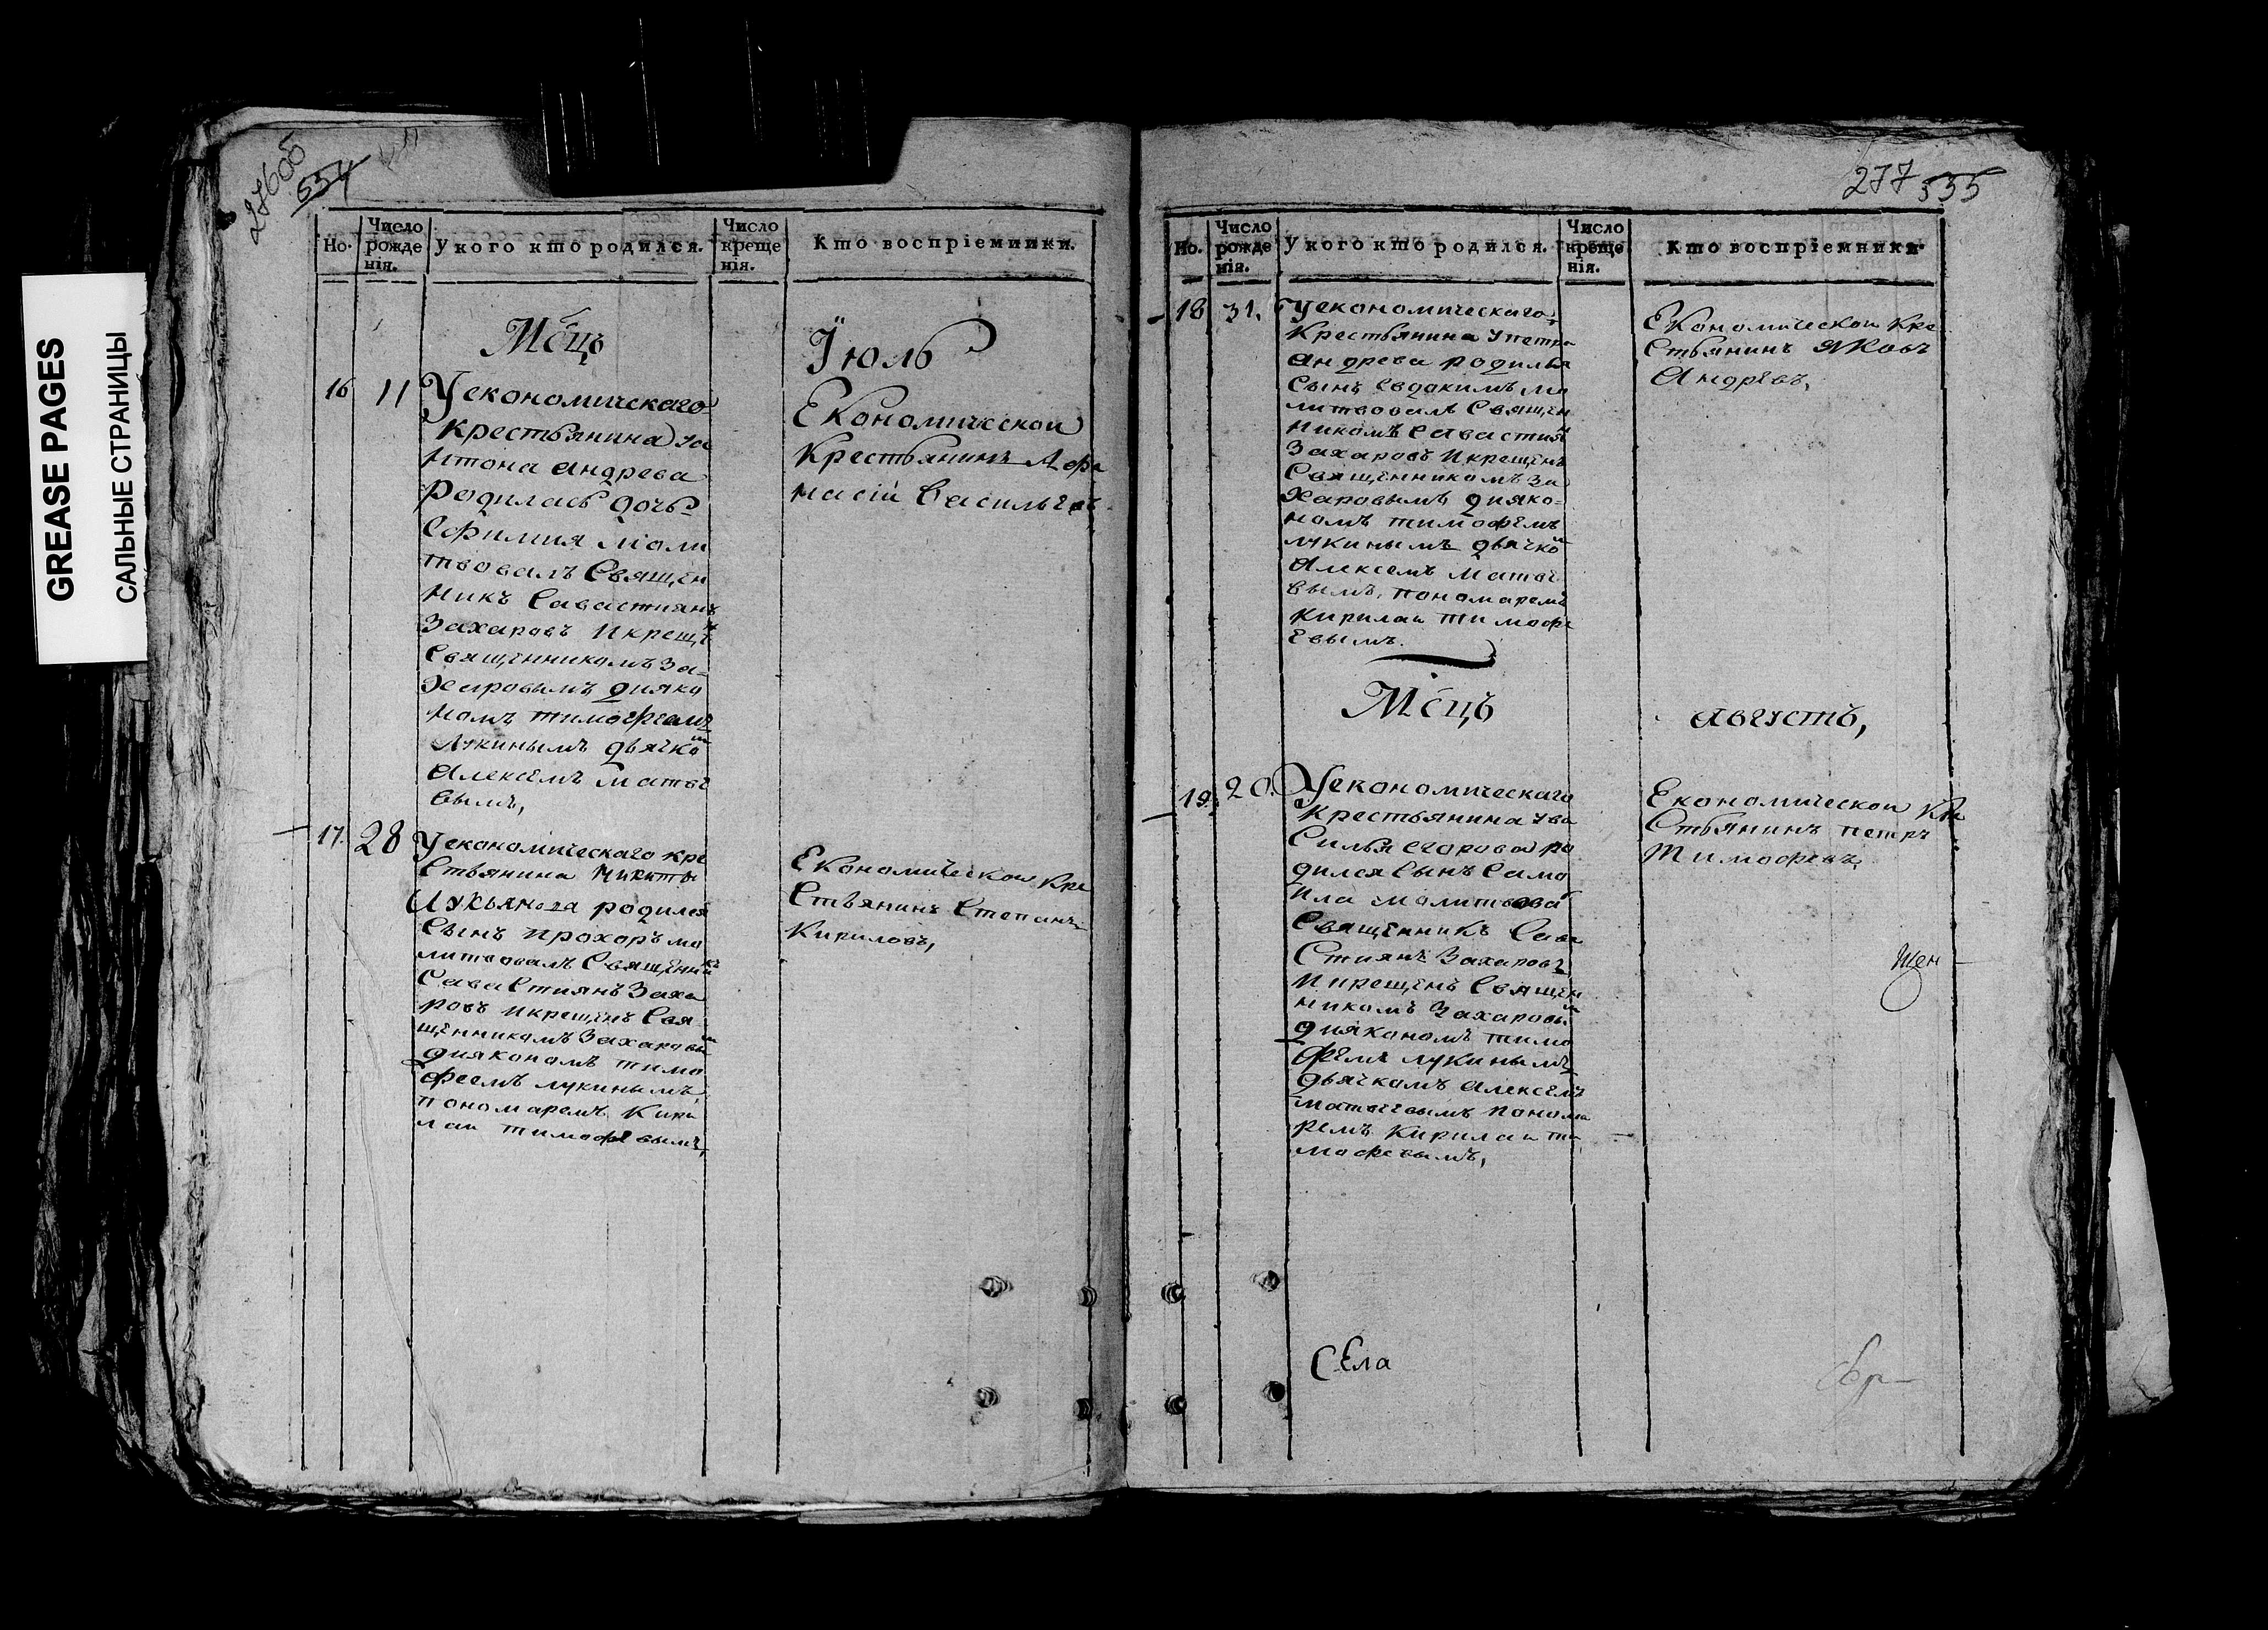 GREASE PAGES
САЛЬНЫЕ СТРАНИЦЫ
534
Но.
Число рожденія.
У кого кто родился.
Число крещенія.
Кто воспріемники.
Мсць
Іюль
16
11
Уекономическаго
крестьянина уа
нтона андрева
родилась дочь
Ефимия моли
твовалъ Священ
никъ Савастиянъ
Захаровъ икрещен
Священникомъ За-
харовымъ дияко
номъ тимофеемъ
лукинымъ дьячком
Алексемъ матве
вымъ,
Економической
Крестьянинъ Афа
насій Васильевъ
17.
28
Уекономическаго кре
стьянина никиты
Лукьянова родился
Сынъ прохоръ мо
литвовалъ Священникъ
Савастиянъ Заха
ровъ икрещенъ Свя
щенникомъ Захаровым
дияконамъ тимо
феемъ лукинымъ
пономаремъ Кири
лаи тимофевымъ,
Економической Кре
стьянинъ Степанъ
Кириловъ,
277 535
Но.
Число рожденія.
У кого кто родился.
Число крещенія.
Кто воспріемники.
18
31.
Уекономическаго
Крестьянина упетра
андрева родилъся
Сынъ Евдокимъ мо
литвовалъ Священ
никомъ Савастиян
Захаровъ икрещенъ
Священникомъ За
харовымъ дияко-
номъ тимофемъ
лукинымъ дьячком
Алексемъ матве
вымъ, пономаремъ
кирилаи тимофе
евымъ.
Економической Кре
стьянинъ Яковъ
Андревъ,
Мсць
августъ,
19.
20.
Уекономическаго
Крестьянина ува
Силья егорова ро
дился Сынъ Само
ила молитвовал
Священникъ Сава
Стиянъ Захаровъ
икрещенъ Священ
никомъ Захаровым
дияконамъ тимо
фемъ лукинымъ
дьячкамъ алексемъ
матвеевымъ понома
ремъ Кирилаи ти
мофевымъ,
Економической Кре
Стьянинъ петръ
Тимофевъ,
Села